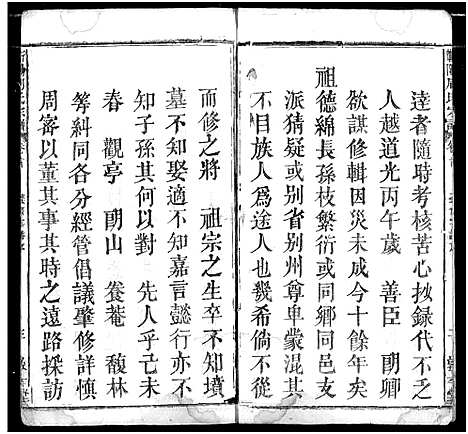 達者隨時考核苦心抄録代不
人越道光丙午歲　善臣　明卿
欲謀修輯因災未成今十餘年矣
祖德綿長孫枝繁衍或同鄉同邑支
派猜疑或别省别州尊卑蒙混其
不目族人為途人也幾希倘不從
而修之將　祖宗之生卒不知墳
墓不知娶適不知嘉言懿行亦不
知子孫其何以對　先人乎兹
春　觀亭　明山　養菴　馥林
等糾同各分經管倡議肇修詳慎
周密以董其事其時之遠路採訪